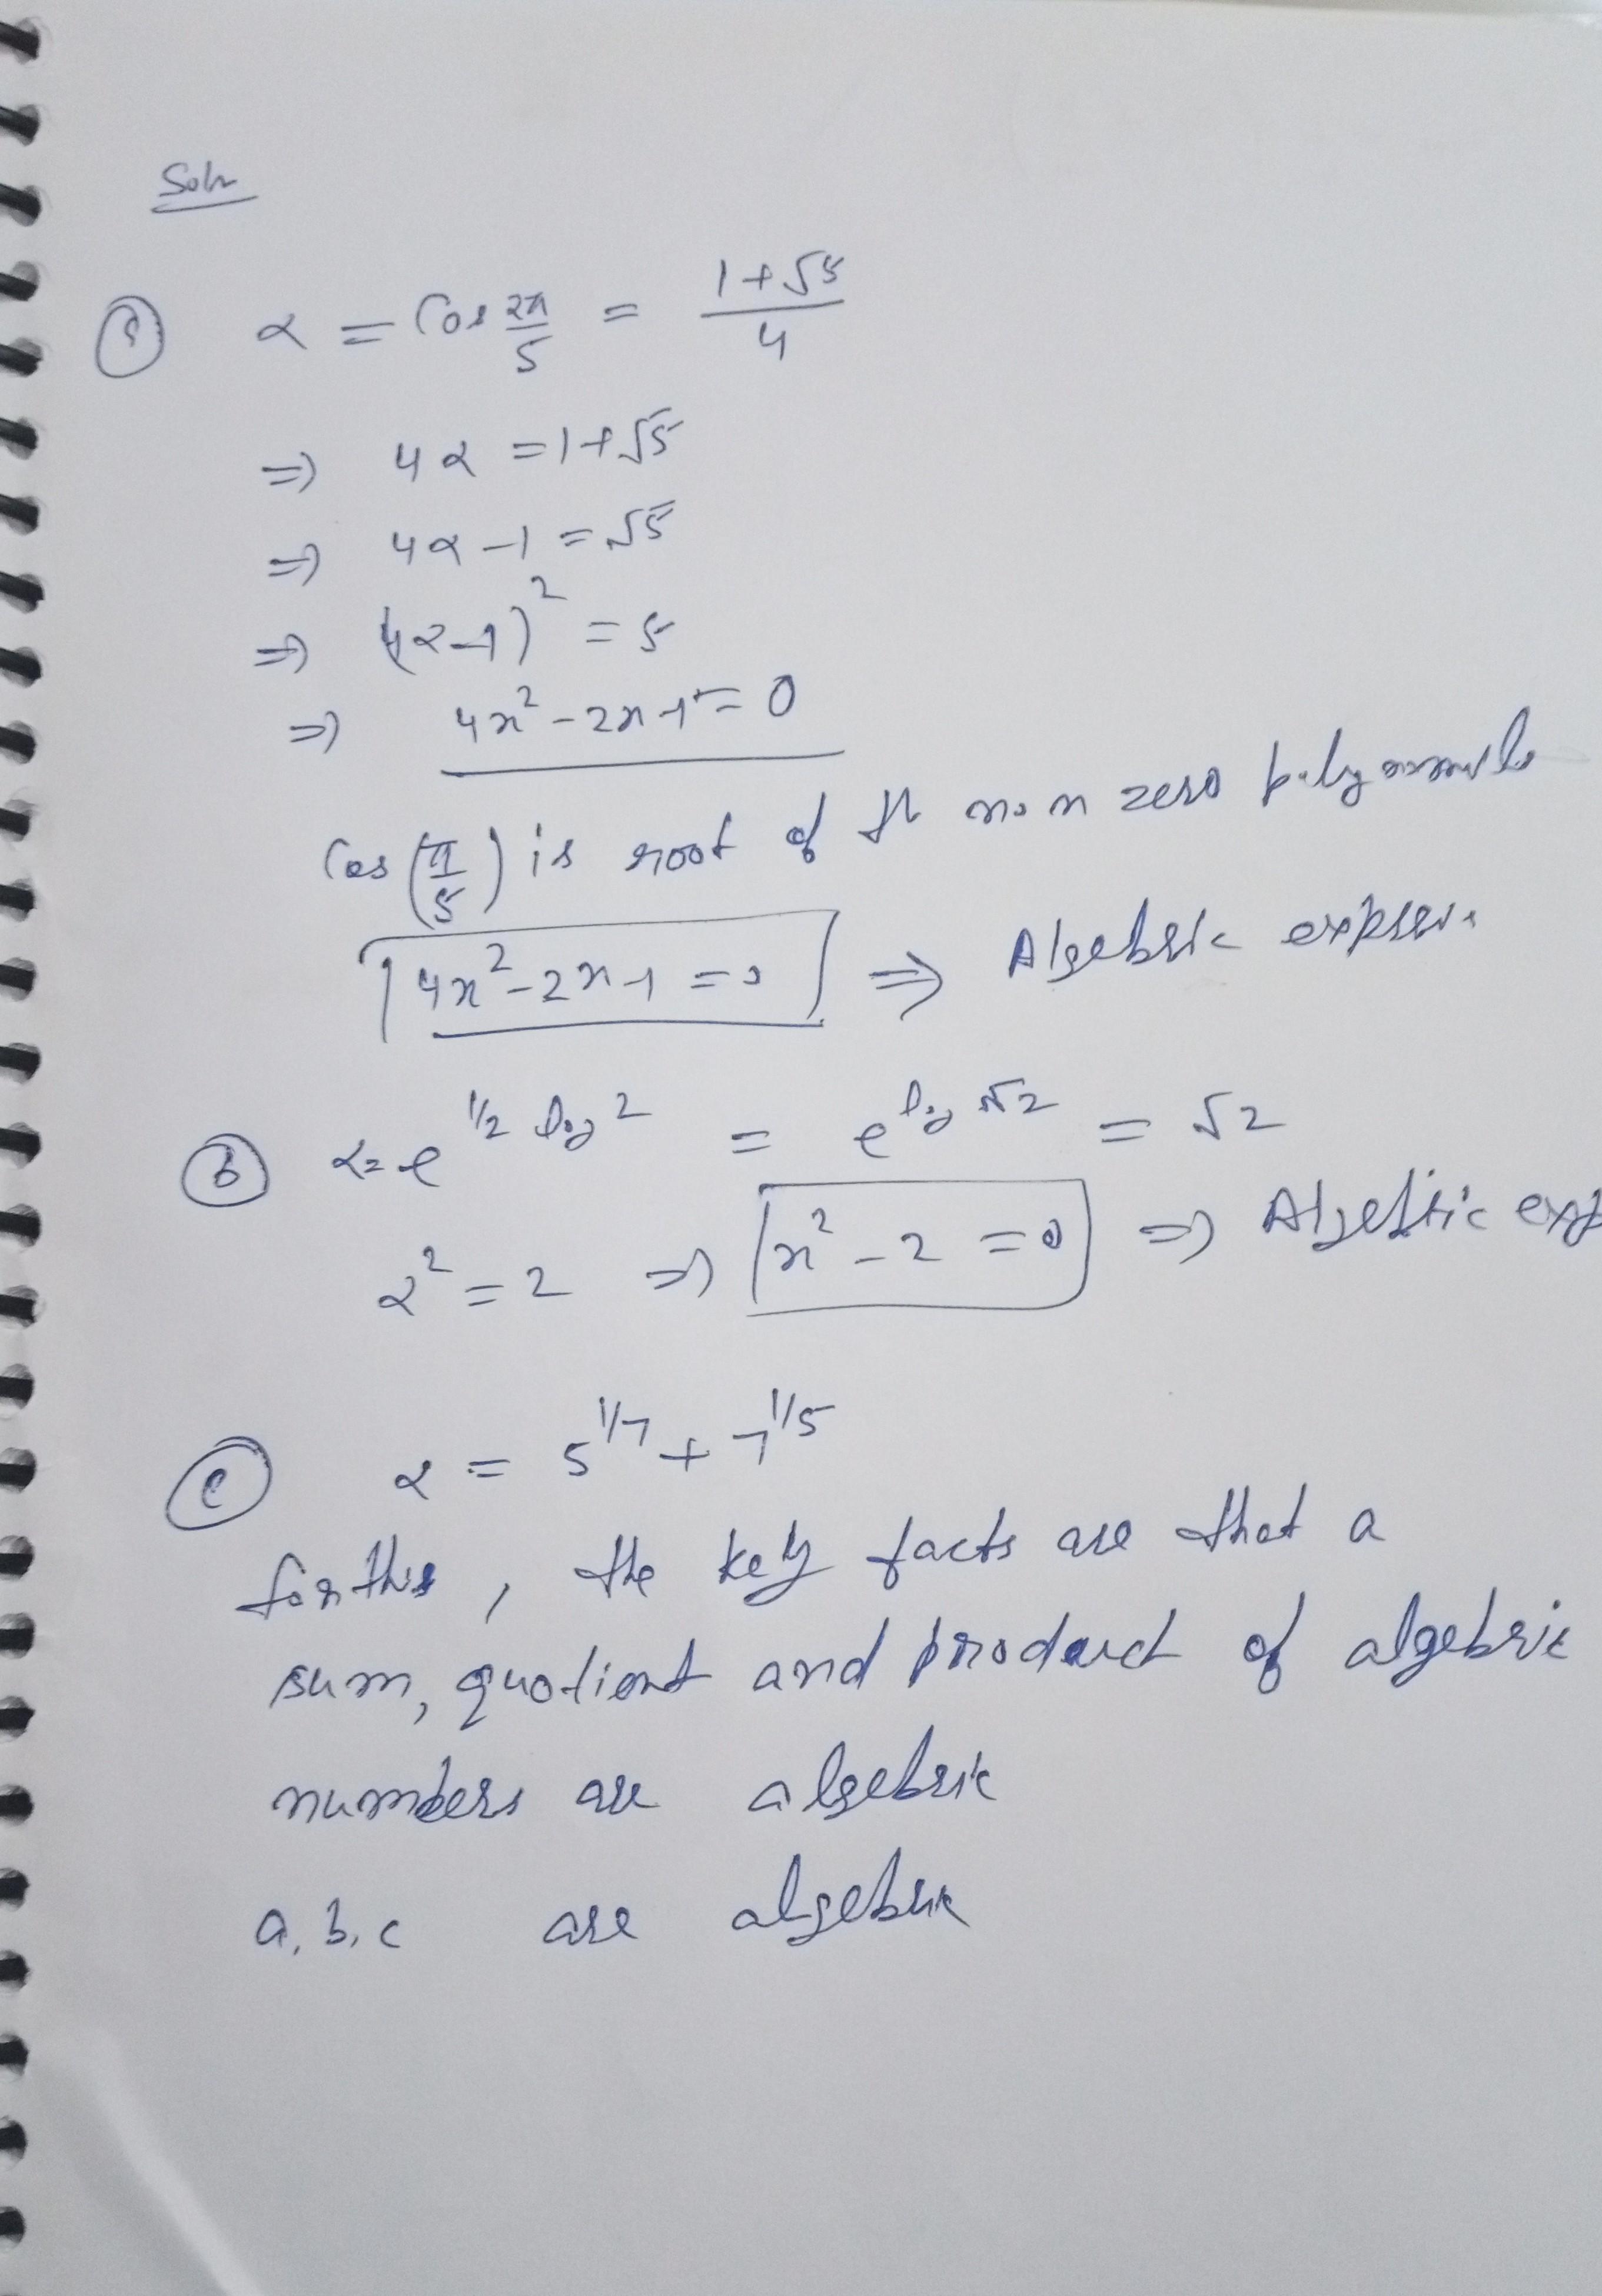 Soln
(a) α = Cos 2π/5 = (1+√5)/4
⇒ 4α = 1+√5
⇒ 4α-1 = √5
⇒ (4α-1)² = 5
⇒ 4x²-2x-1 = 0
Cos (π/5) is root of th non zero
4x²-2x-1 = 0 ⇒ Algebric
(b) α = e^{1/2 log 2} = e^{log √2} = √2
α² = 2 ⇒ x²-2 = 0 ⇒ Algebric exp
(c) α = 5^{1/7} + 7^{1/5}
for this, the key facts are that a
sum, quotient and product of algebric
numbers are algebric
a, b, c are algebric